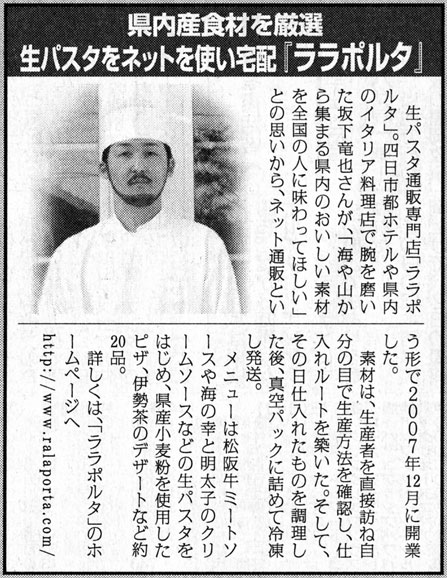 県内産食材を厳選
生パスタをネットを使い宅配『ララポルタ』
生パスタ通販専門店「ララポ
ルタ」。四日市都ホテルや県内
のイタリア料理店で腕を磨い
た坂下竜也さんが、「海や山か
ら集まる県内のおいしい素材
を全国の人に味わってほしい」
との思いから、ネット通販とい
う形で2007年12月に開業
した。
素材は、生産者を直接訪ね自
分の目で生産方法を確認し、仕
入れルートを築いた。そして、
その日仕入れたものを調理し
た後、真空パックに詰めて冷凍
し発送。
メニューは松阪牛ミートソ
ースや海の幸と明太子のクリ
ームソースなどの生パスタを
はじめ、県産小麦粉を使用した
ピザ、伊勢茶のデザートなど約
20品。
詳しくは、「ララポルタ」のホ
ームページへ
http://www.ralaporta.com/